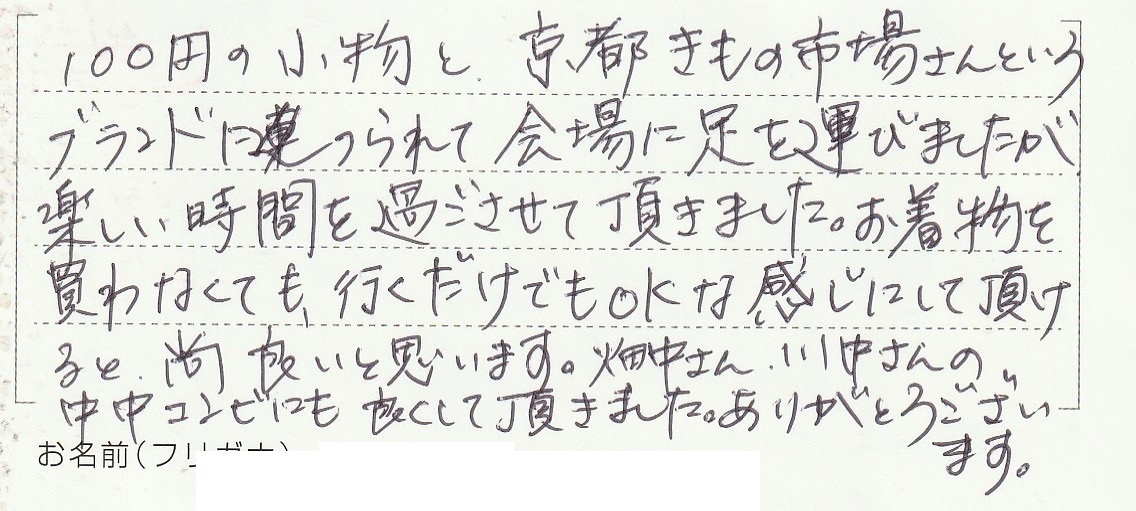 100円の小物と、京都きもの市場さんという
ブランドに連つられて会場に足を運びましたが
楽しい時間を過ごさせて頂きました。お着物を
買わなくても、行くだけでもOKな感じにして頂け
ると、尚良いと思います。畑中さん、川中さんの
中中コンビにも良くして頂きました。ありがとうござい
ます。
お名前(フリガナ)